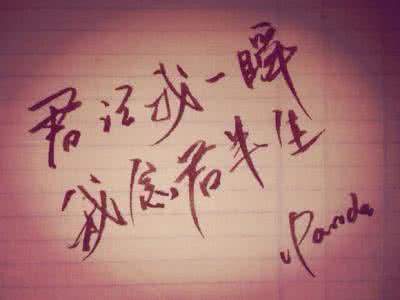 君记我一瞬
我念君半生
Panda